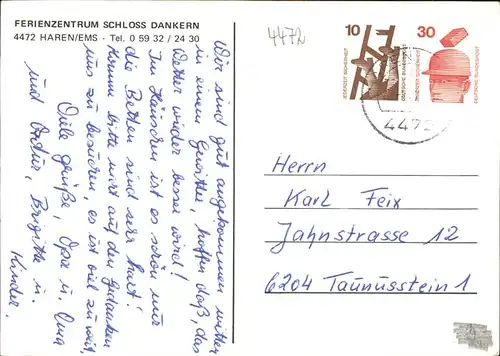 FERIENZENTRUM SCHLOSS DANKERN
4472 HAREN/EMS · Tel. 0 59 32 / 24 30
4472
10
JEDERZEIT SICHERHEIT
DEUTSCHE BUNDESPOST
30
JEDERZEIT SICHERHEIT
DEUTSCHE BUNDESPOST
4472
Wir sind gut angekommen mitten
in einem Gewitter, hoffen daß, das
Wetter wieder besser wird!
Im Häuschen ist es schön nur
die Betten sind sehr hart!
Kommt bitte nicht auf den Gedanken
uns zu besuchen, es ist viel zu weit,
Viele Grüße, Opa u. Oma
und Artur, Brigitte u.
Kinder.
Herrn
Karl Feix
Jahnstrasse 12
6204 Taunusstein 1